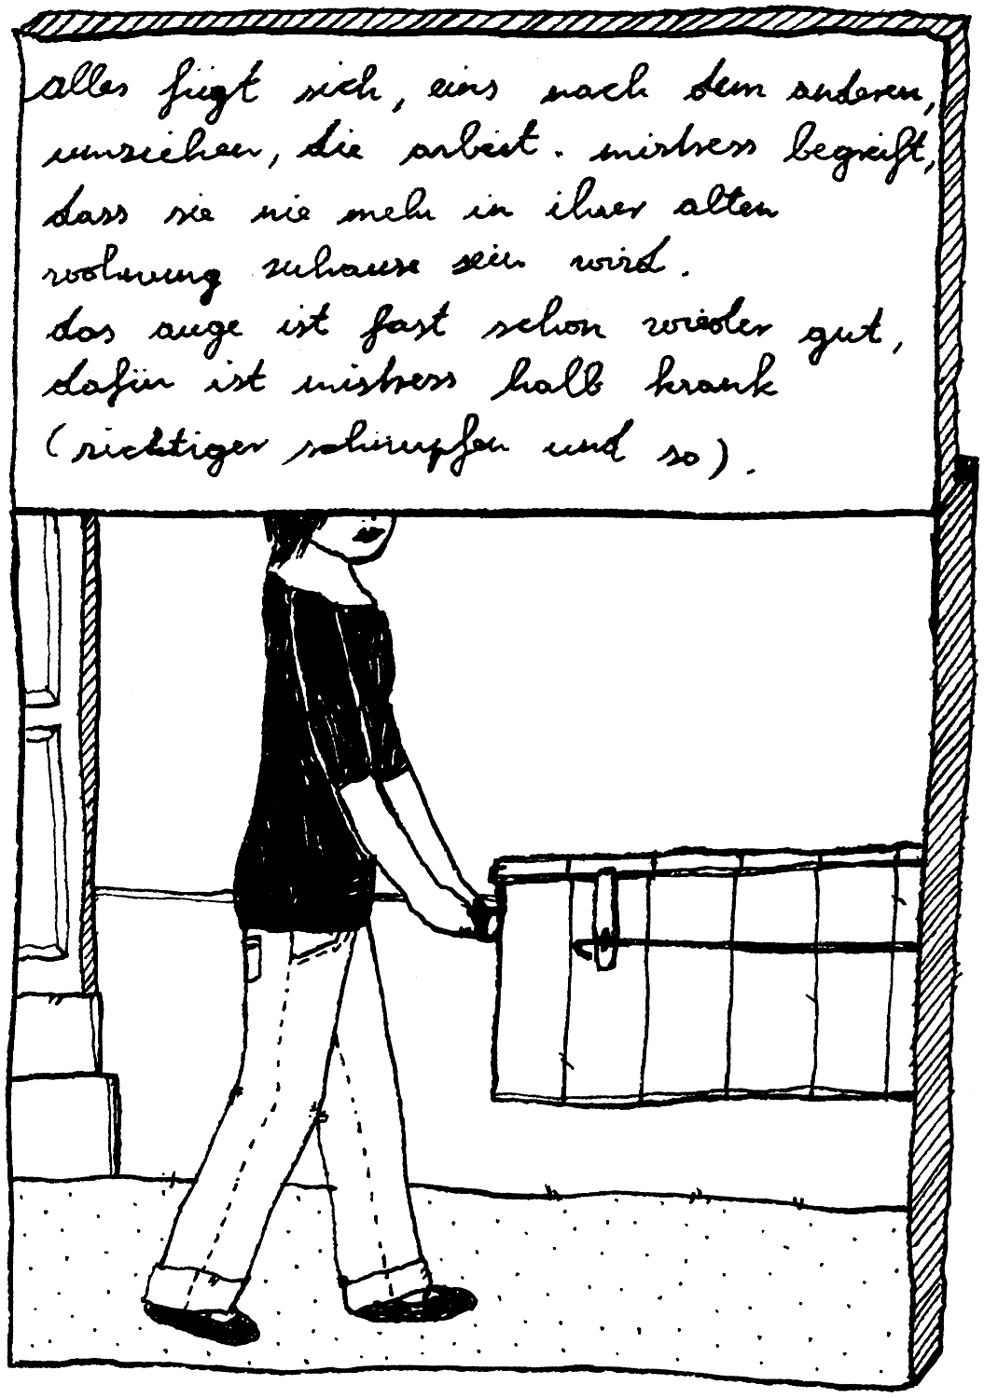 alles fügt sich, eins nach dem anderen,
umziehen, die arbeit. mistress begreift,
dass sie nie mehr in ihrer alten
wohnung zuhause sein wird.
das auge ist fast schon wieder gut,
dafür ist mistress halb krank
(richtiger schnupfen und so).